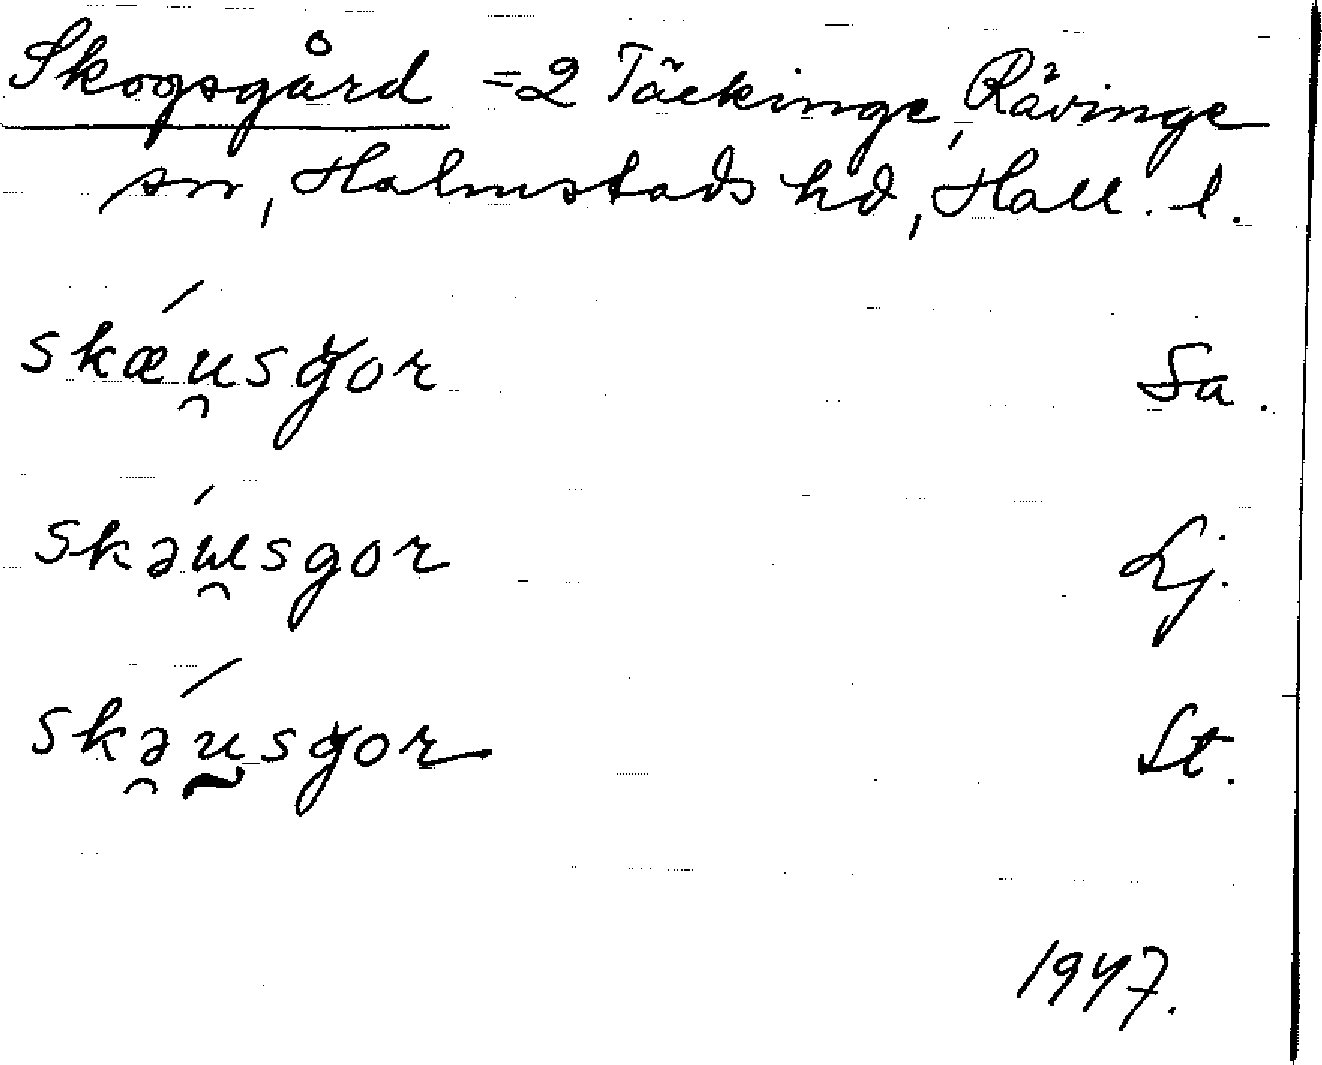 Skogsgård =2 Täckinge, Rävinge
sn, Halmstads hd, Hall. l.
skǽu̯sgor Sa.
skǝ́u̯sgor Lj.
skǝ̯́u̯sgor St.
1947.